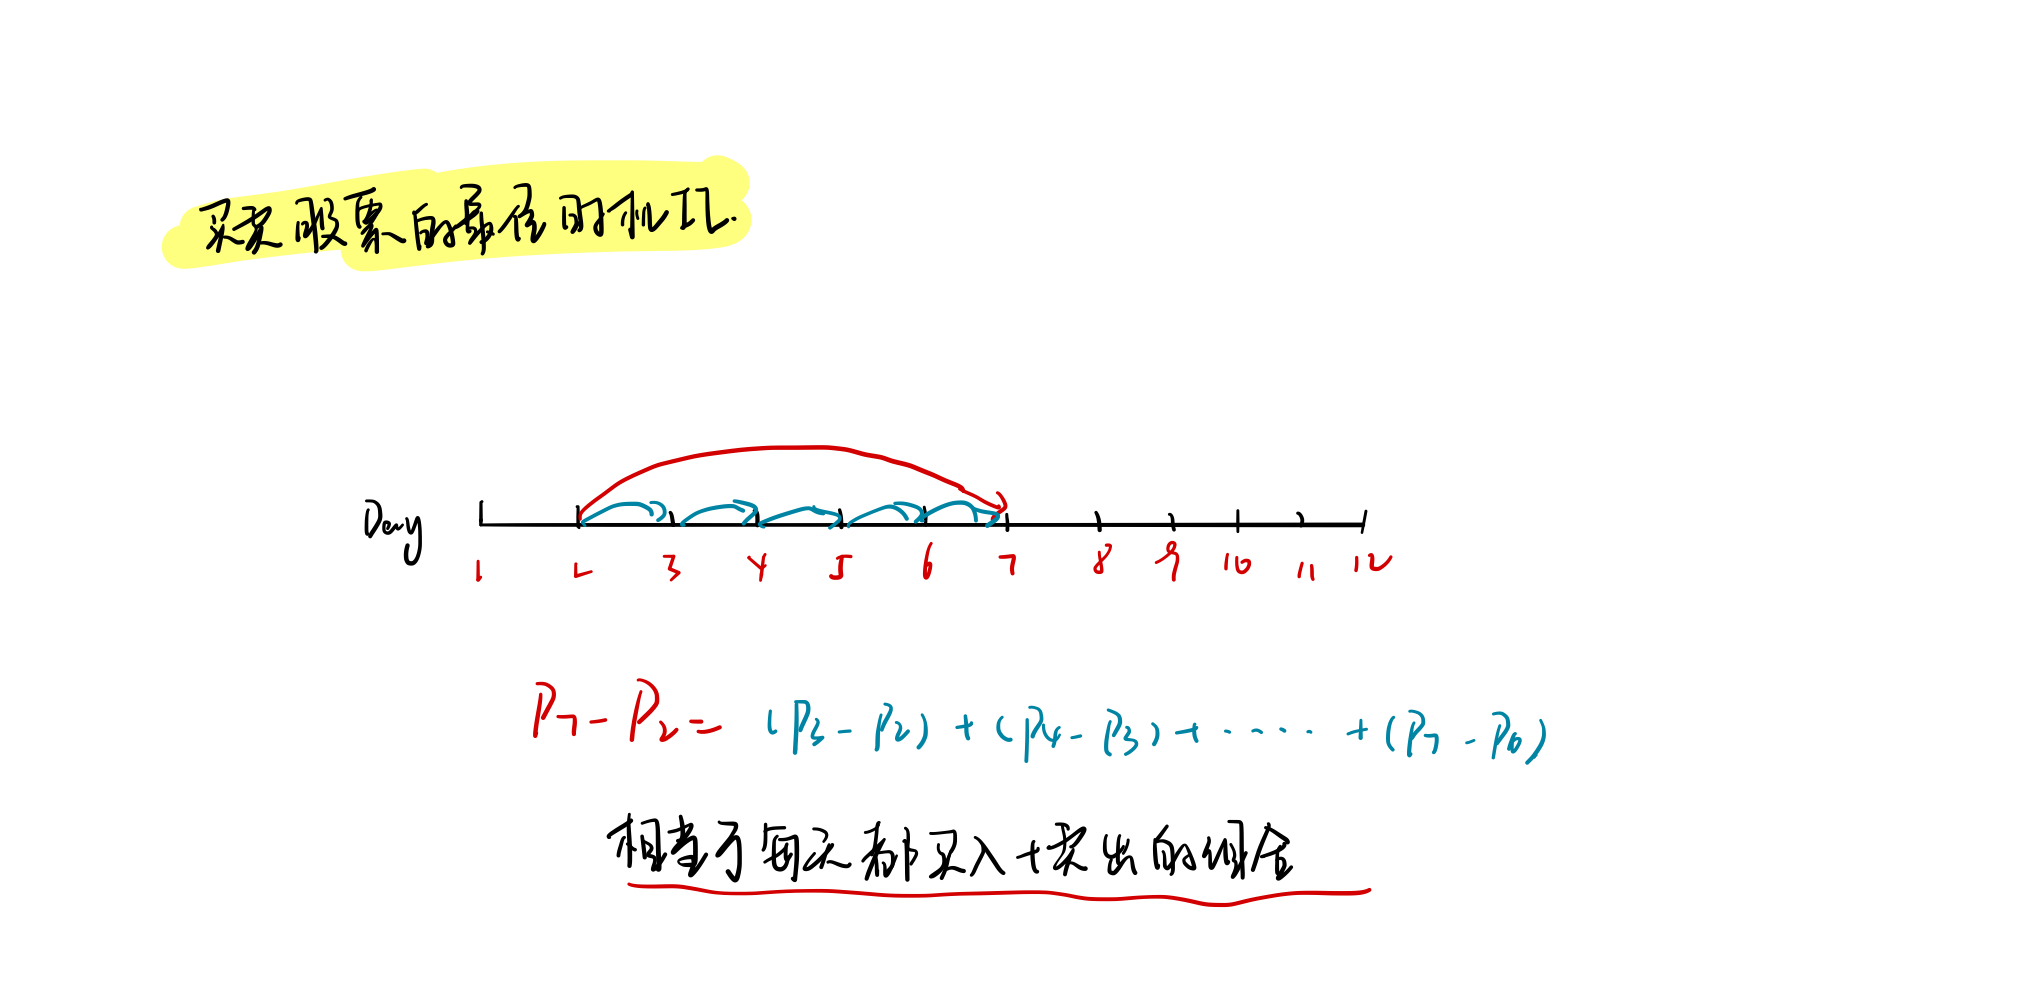 买卖股票的最佳时机II.
Day
1 2 3 4 5 6 7 8 9 10 11 12
P7 - P2 = (P3 - P2) + (P4 - P3) + ····· + (P7 - P6)
相当于每天都买入+卖出的组合